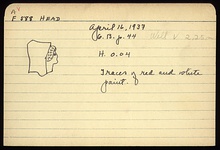 A
F 588 HEAD
April 16, 1937
G.B. p. 44
H. 0.04
Traces of red and white
paint.